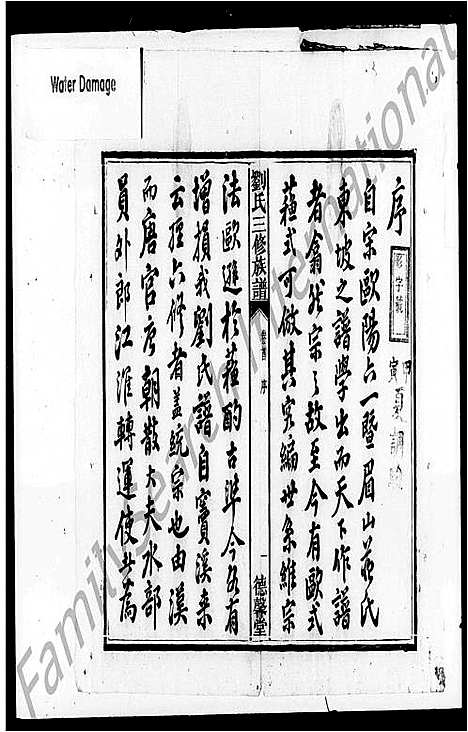 Water Damage
序
自宋歐陽六一暨眉山蘇氏
東坡之譜學出而天下作譜
者翕然宗之故至今有歐式
蘇式可做其實編世系維宗
法歐進於蘇酌古準今各有
增損我劉氏譜自寶溪來
云經六修者蓋統宗也由溪
而唐官居朝散大夫水部
員外郎江淮轉運使
劉氏三修族譜
卷首 序
一
德馨堂
FamilySearch International